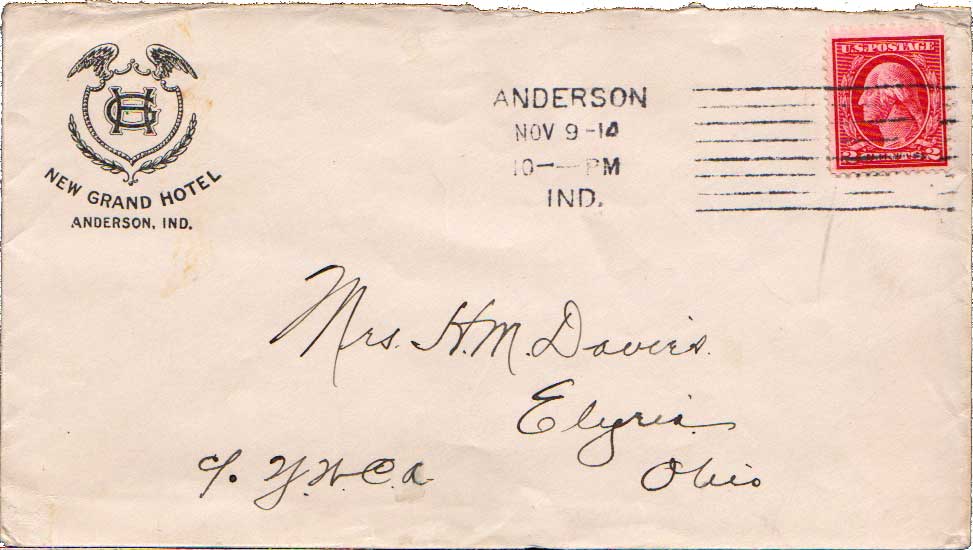 NEW GRAND HOTEL
ANDERSON, IND.
ANDERSON
NOV 9-14
10-- PM
IND.
U.S. POSTAGE
2 CENTS 2
Mrs. H. M. Davies.
Elyria
c/o Y.W.C.A.
Ohio